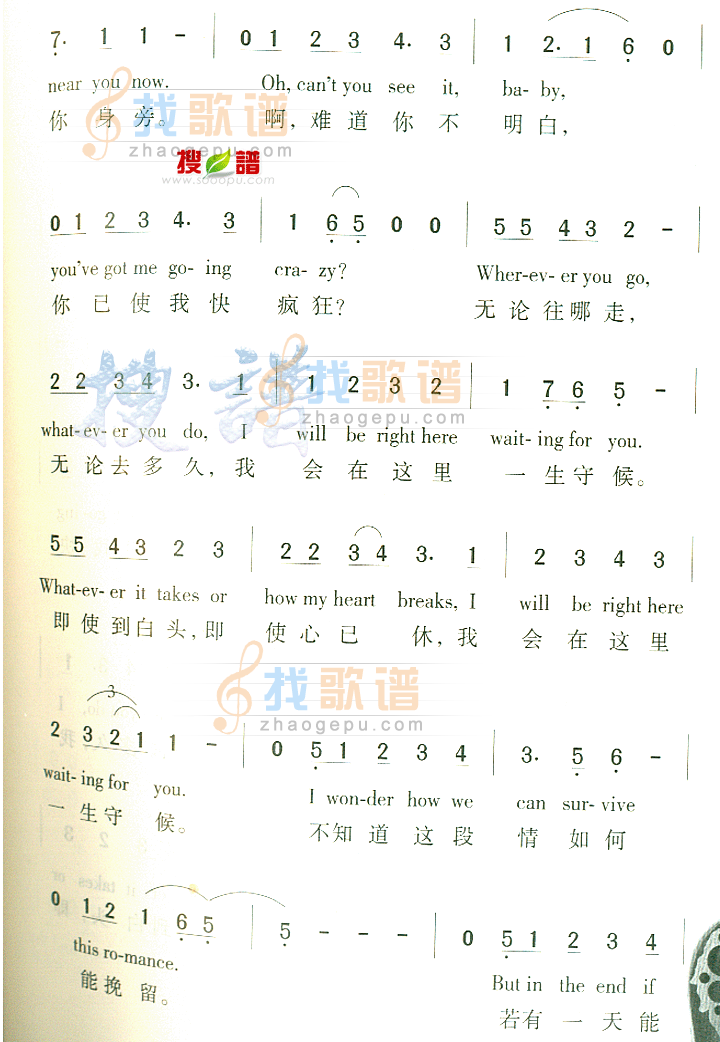 7· 1 1 - | 0 1 2 3 4· 3 | 1 2· 1 6 0
near you now. Oh, can't you see it, ba- by,
你 身 旁。 啊, 难 道 你 不 明 白,
找歌谱
zhaogepu.com
搜谱
www.sooopu.com
0 1 2 3 4· 3 | 1 6 5 0 0 | 5 5 4 3 2 -
you've got me go- ing cra- zy? Wher-ev- er you go,
你 已 使 我 快 疯 狂? 无 论 往 哪 走,
找歌谱
zhaogepu.com
搜譜
2 2 3 4 3· 1 | 1 2 3 2 | 1 7 6 5 -
what-ev- er you do, I will be right here wait- ing for you.
无 论 去 多 久, 我 会 在 这 里 一 生 守 候。
5 5 4 3 2 3 | 2 2 3 4 3· 1 | 2 3 4 3
What-ev- er it takes or how my heart breaks, I will be right here
即 使 到 白 头, 即 使 心 已 休, 我 会 在 这 里
找歌谱
zhaogepu.com
3
2 3 2 1 1 - | 0 5 1 2 3 4 | 3· 5 6 -
wait- ing for you. I won-der how we can sur- vive
一 生 守 候。 不 知 道 这 段 情 如 何
0 1 2 1 6 5 | 5 - - - | 0 5 1 2 3 4
this ro-mance. But in the end if
能 挽 留。 若 有 一 天 能